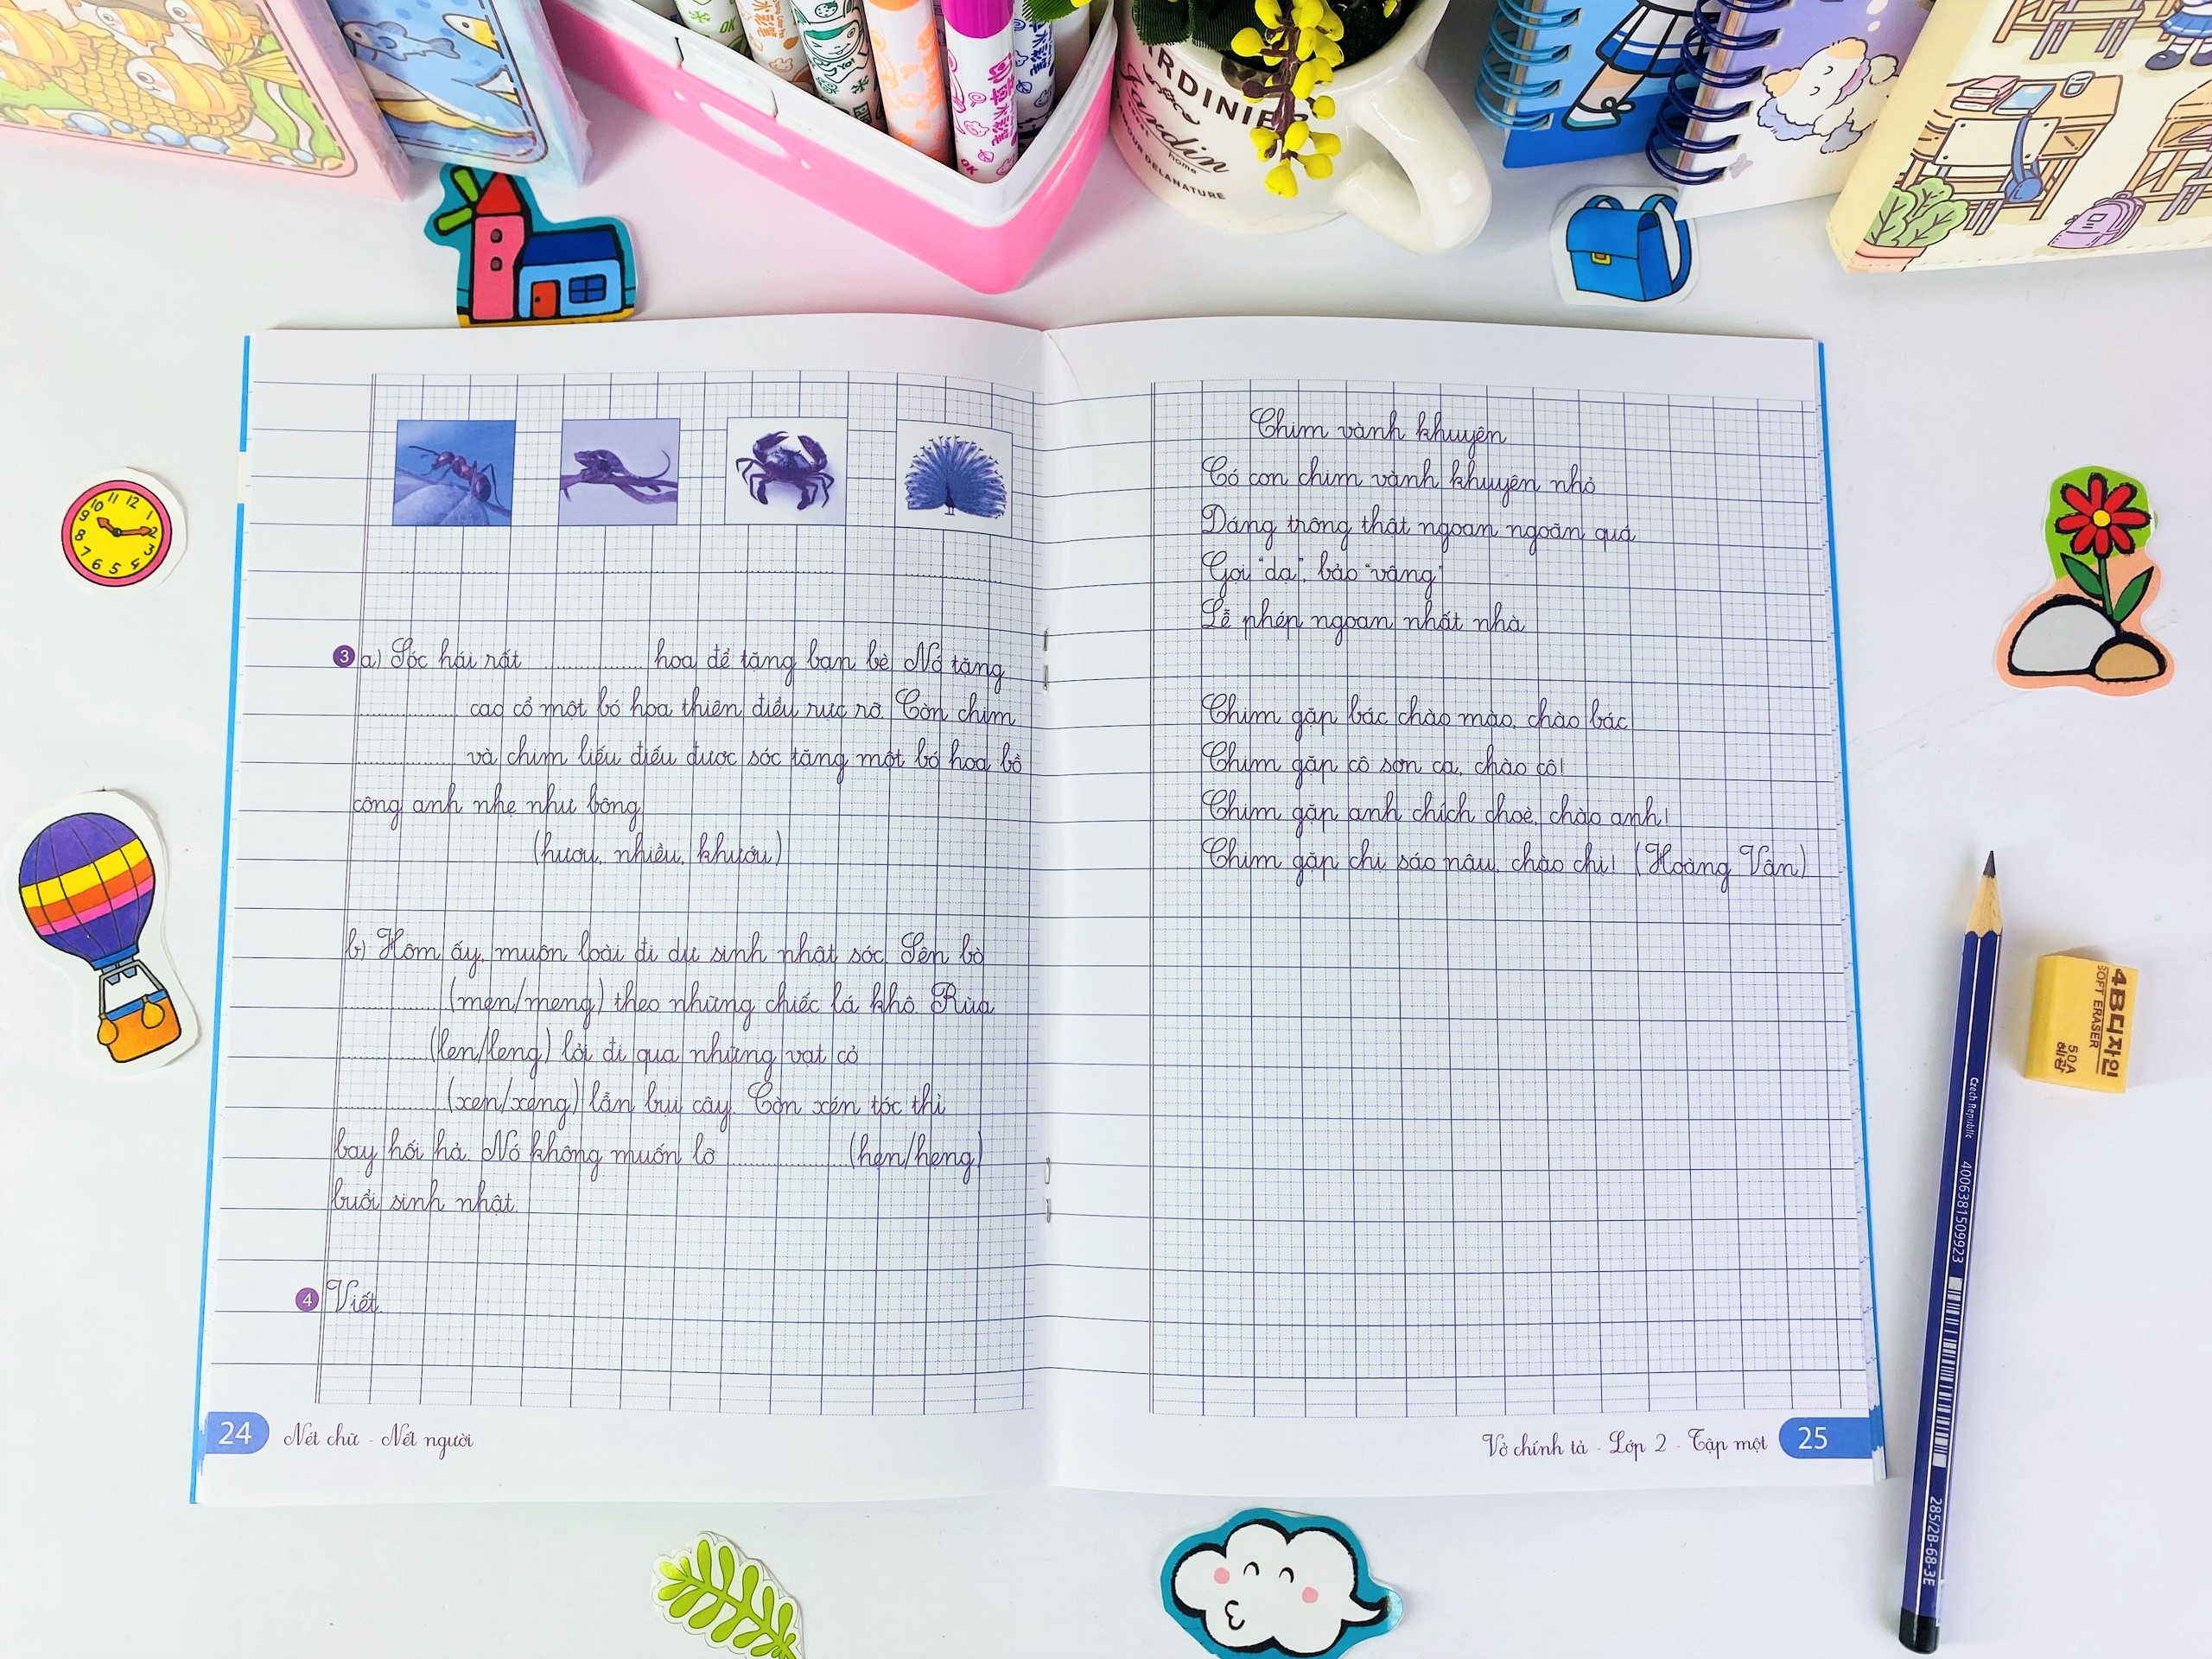 OK
OK
RDINIE
Jardin
home
UR DELANATURE
12
1
2
3
4
5
6
7
8
9
10
11
3 a) Sóc hái rất ............ hoa để tặng bạn bè. Nó tặng
............ cao cổ một bó hoa thiên điểu rực rỡ. Còn chim
............ và chim liếu điếu được sóc tặng một bó hoa bồ
công anh nhẹ như bông.
(hươu, nhiều, khướu)
b) Hôm ấy, muôn loài đi dự sinh nhật sóc. Sên bò
............ (men/meng) theo những chiếc lá khô. Rùa
............ (len/leng) lỏi đi qua những vạt cỏ
............ (xen/xeng) lẫn bụi cây. Còn xén tóc thì
bay hối hả. Nó không muốn lỡ ............ (hẹn/hẹng)
buổi sinh nhật.
4 Viết
24 Nét chữ - Nết người
Chim vành khuyên
Có con chim vành khuyên nhỏ
Dáng trông thật ngoan ngoãn quá
Gọi "dạ", bảo "vâng"
Lễ phép ngoan nhất nhà
Chim gặp bác chào mào, chào bác
Chim gặp cô sơn ca, chào cô!
Chim gặp anh chích choè, chào anh!
Chim gặp chị sáo nâu, chào chị! (Hoàng Vân)
Vở chính tả - Lớp 2 - Tập một 25
4B디자인
SOFT ERASER
50A
Czech Republic
4006381509923
285/2B-68-3E